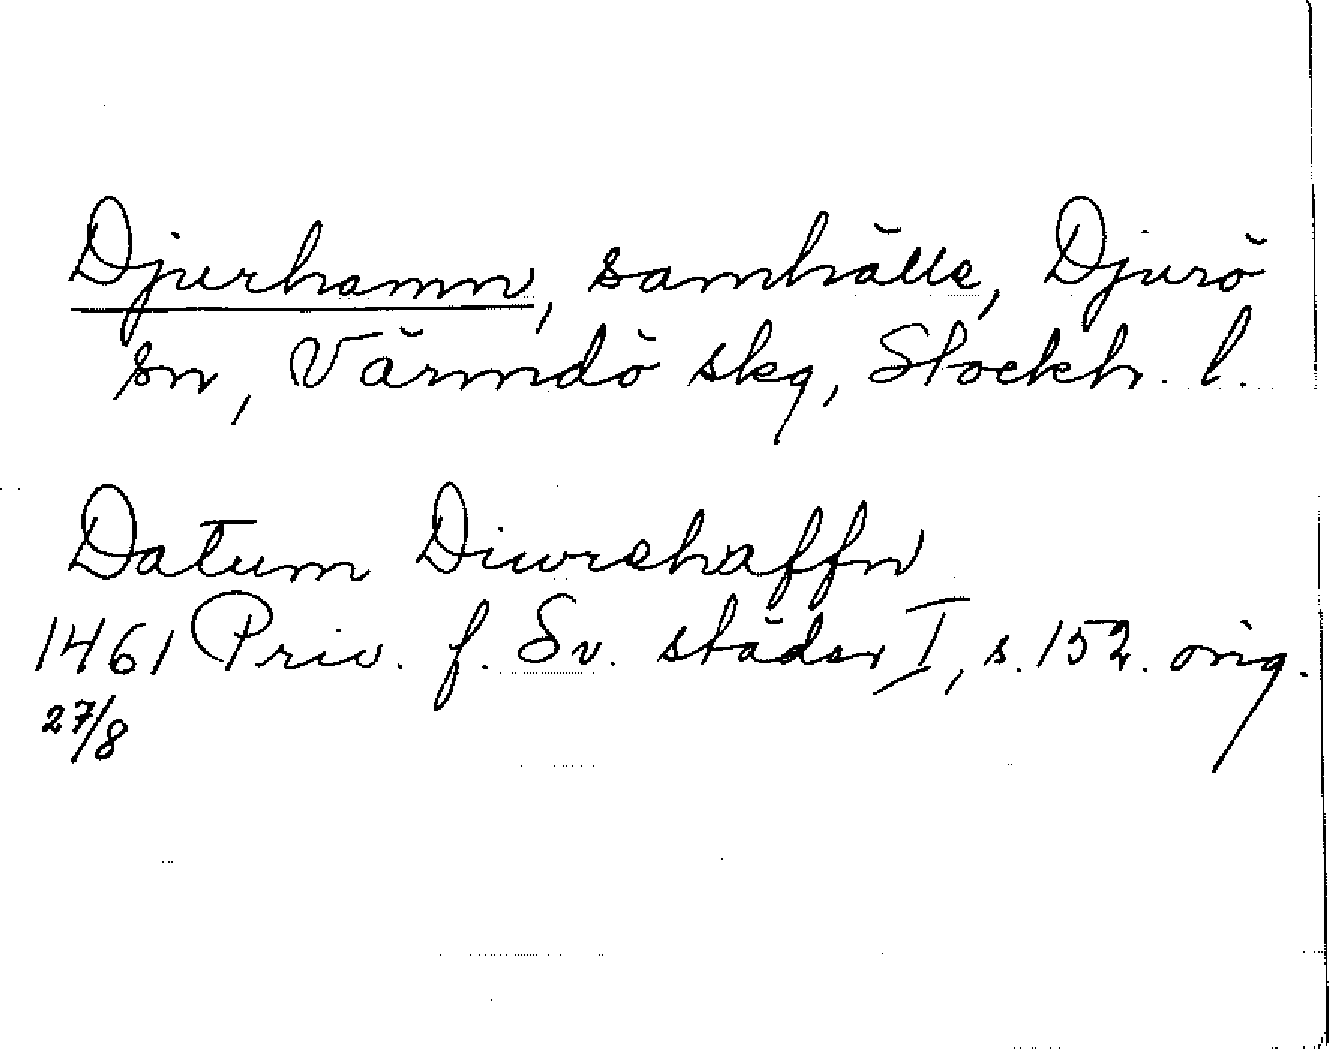 Djurhamn, samhälle, Djurö
sn, Värmdö skg, Stockh. l.
Datum Diwrehaffn
1461 Priv. f. Sv. städer I, s. 152. orig.
27/8